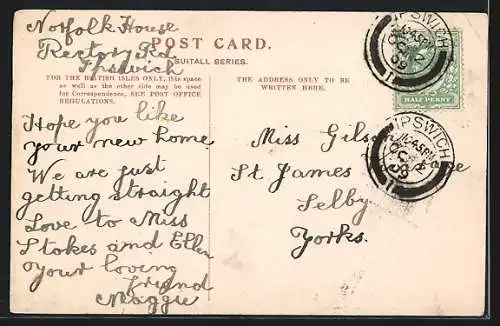 Norfolk House
Rectory Rd
Ipswich
POST CARD.
SUITALL SERIES.
FOR THE BRITISH ISLES ONLY, this space
as well as the other side may be used
for Correspondence, SEE POST OFFICE
REGULATIONS.
THE ADDRESS ONLY TO BE
WRITTEN HERE.
Hope you like
your new home
We are just
getting straight
Love to Miss
Stokes and Ellen
your loving
friend
Maggie
Miss Gilson
St. James
Selby
Yorks.
IPSWICH
HALF PENNY
IPSWICH